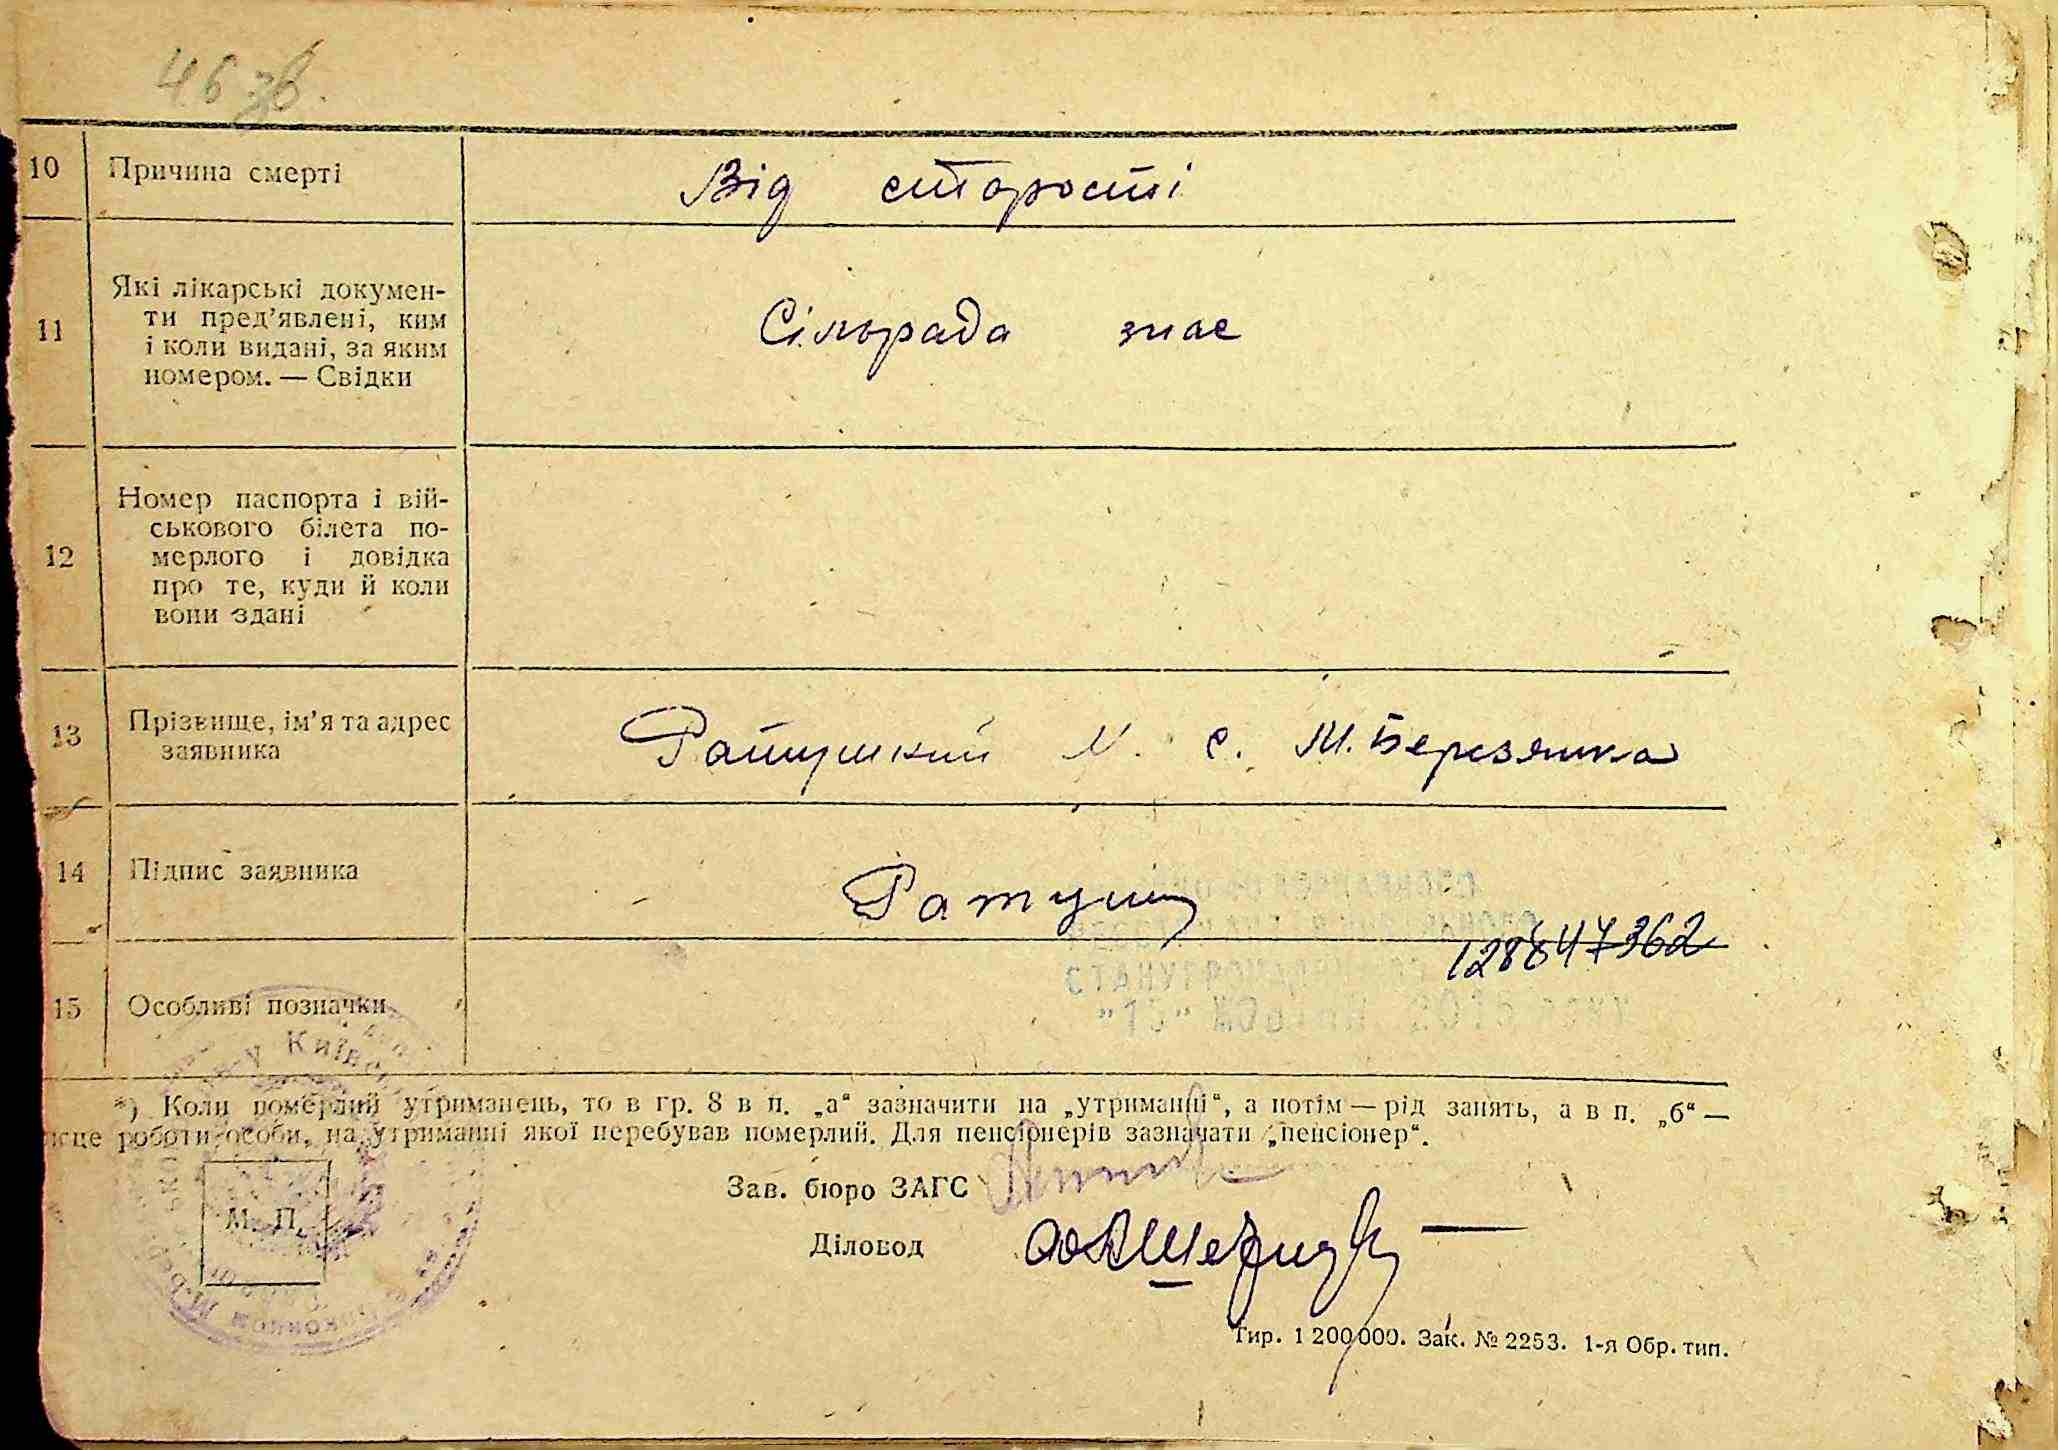 46 зв.
10 Причина смерті Від старості
11 Які лікарські докумен-
ти пред'явлені, ким
і коли видані, за яким
номером. — Свідки
Сільрада знає
12 Номер паспорта і вій-
ськового білета по-
мерлого і довідка
про те, куди й коли
вони здані
13 Прізвище, ім'я та адрес
заявника
с. М. Березянка
14 Підпис заявника
128847362
15 Особливі позначки
*) Коли померлий утриманець, то в гр. 8 в п. „а“ зазначити на „утриманні“, а потім — рід занять, а в п. „б“ —
роботи особи, на утриманні якої перебував померлий. Для пенсіонерів зазначати „пенсіонер“.
Зав. бюро ЗАГС
М. П.
Діловод
Тир. 1 200 000. Зак. № 2253. 1-я Обр. тип.